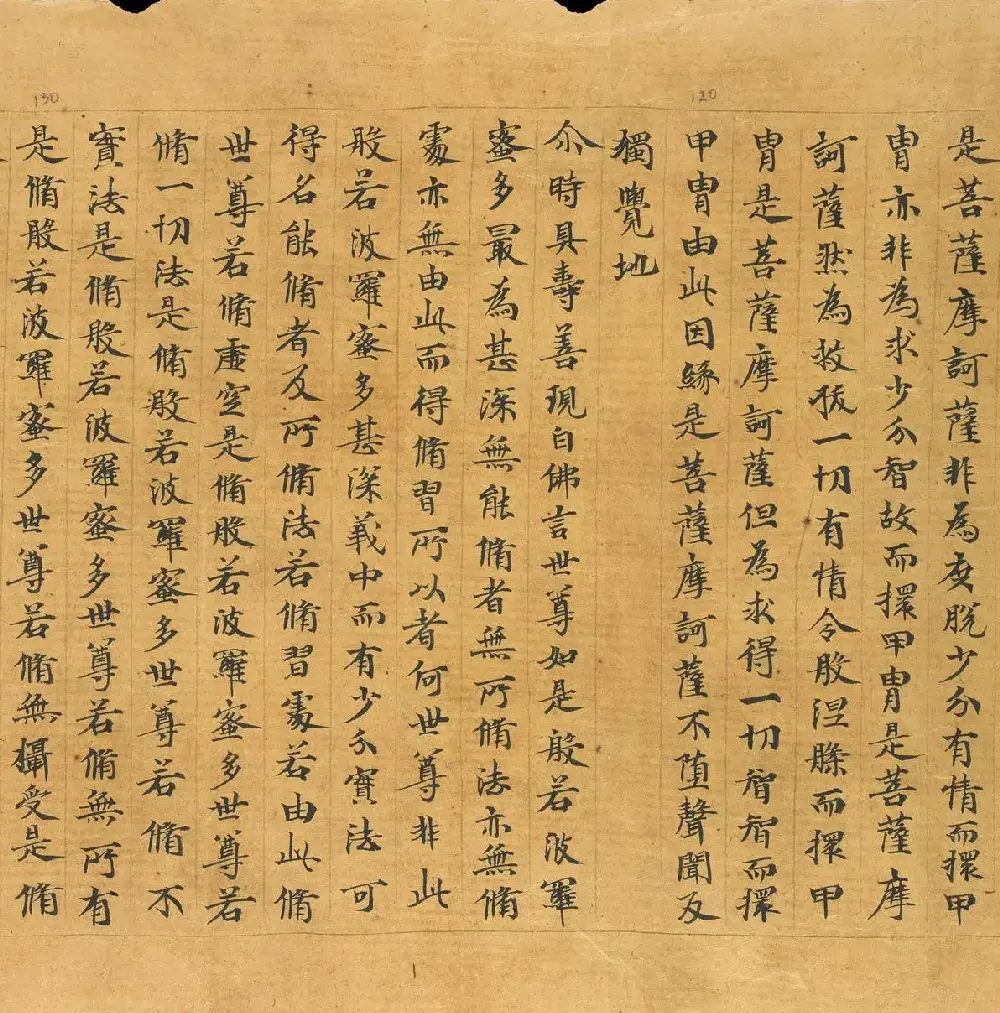 是菩薩摩訶薩非為度脫少分有情而擐甲
冑亦非為求少分智故而擐甲冑是菩薩摩
訶薩然為拔救一切有情令般涅槃而擐甲
冑是菩薩摩訶薩但為求得一切智智而擐
甲冑由此因緣是菩薩摩訶薩不墮聲聞及
獨覺地
尒時具壽善現白佛言世尊如是般若波羅
蜜多最為甚深無能脩者無所脩法亦無脩
處亦無由此而得脩習所以者何世尊非此
般若波羅蜜多甚深義中而有少分實法可
得名能脩者及所脩法若脩習處若由此脩
世尊若脩虛空是脩般若波羅蜜多世尊若
脩一切法是脩般若波羅蜜多世尊若脩不
實法是脩般若波羅蜜多世尊若脩無所有
是脩般若波羅蜜多世尊若脩無攝受是脩
120
130